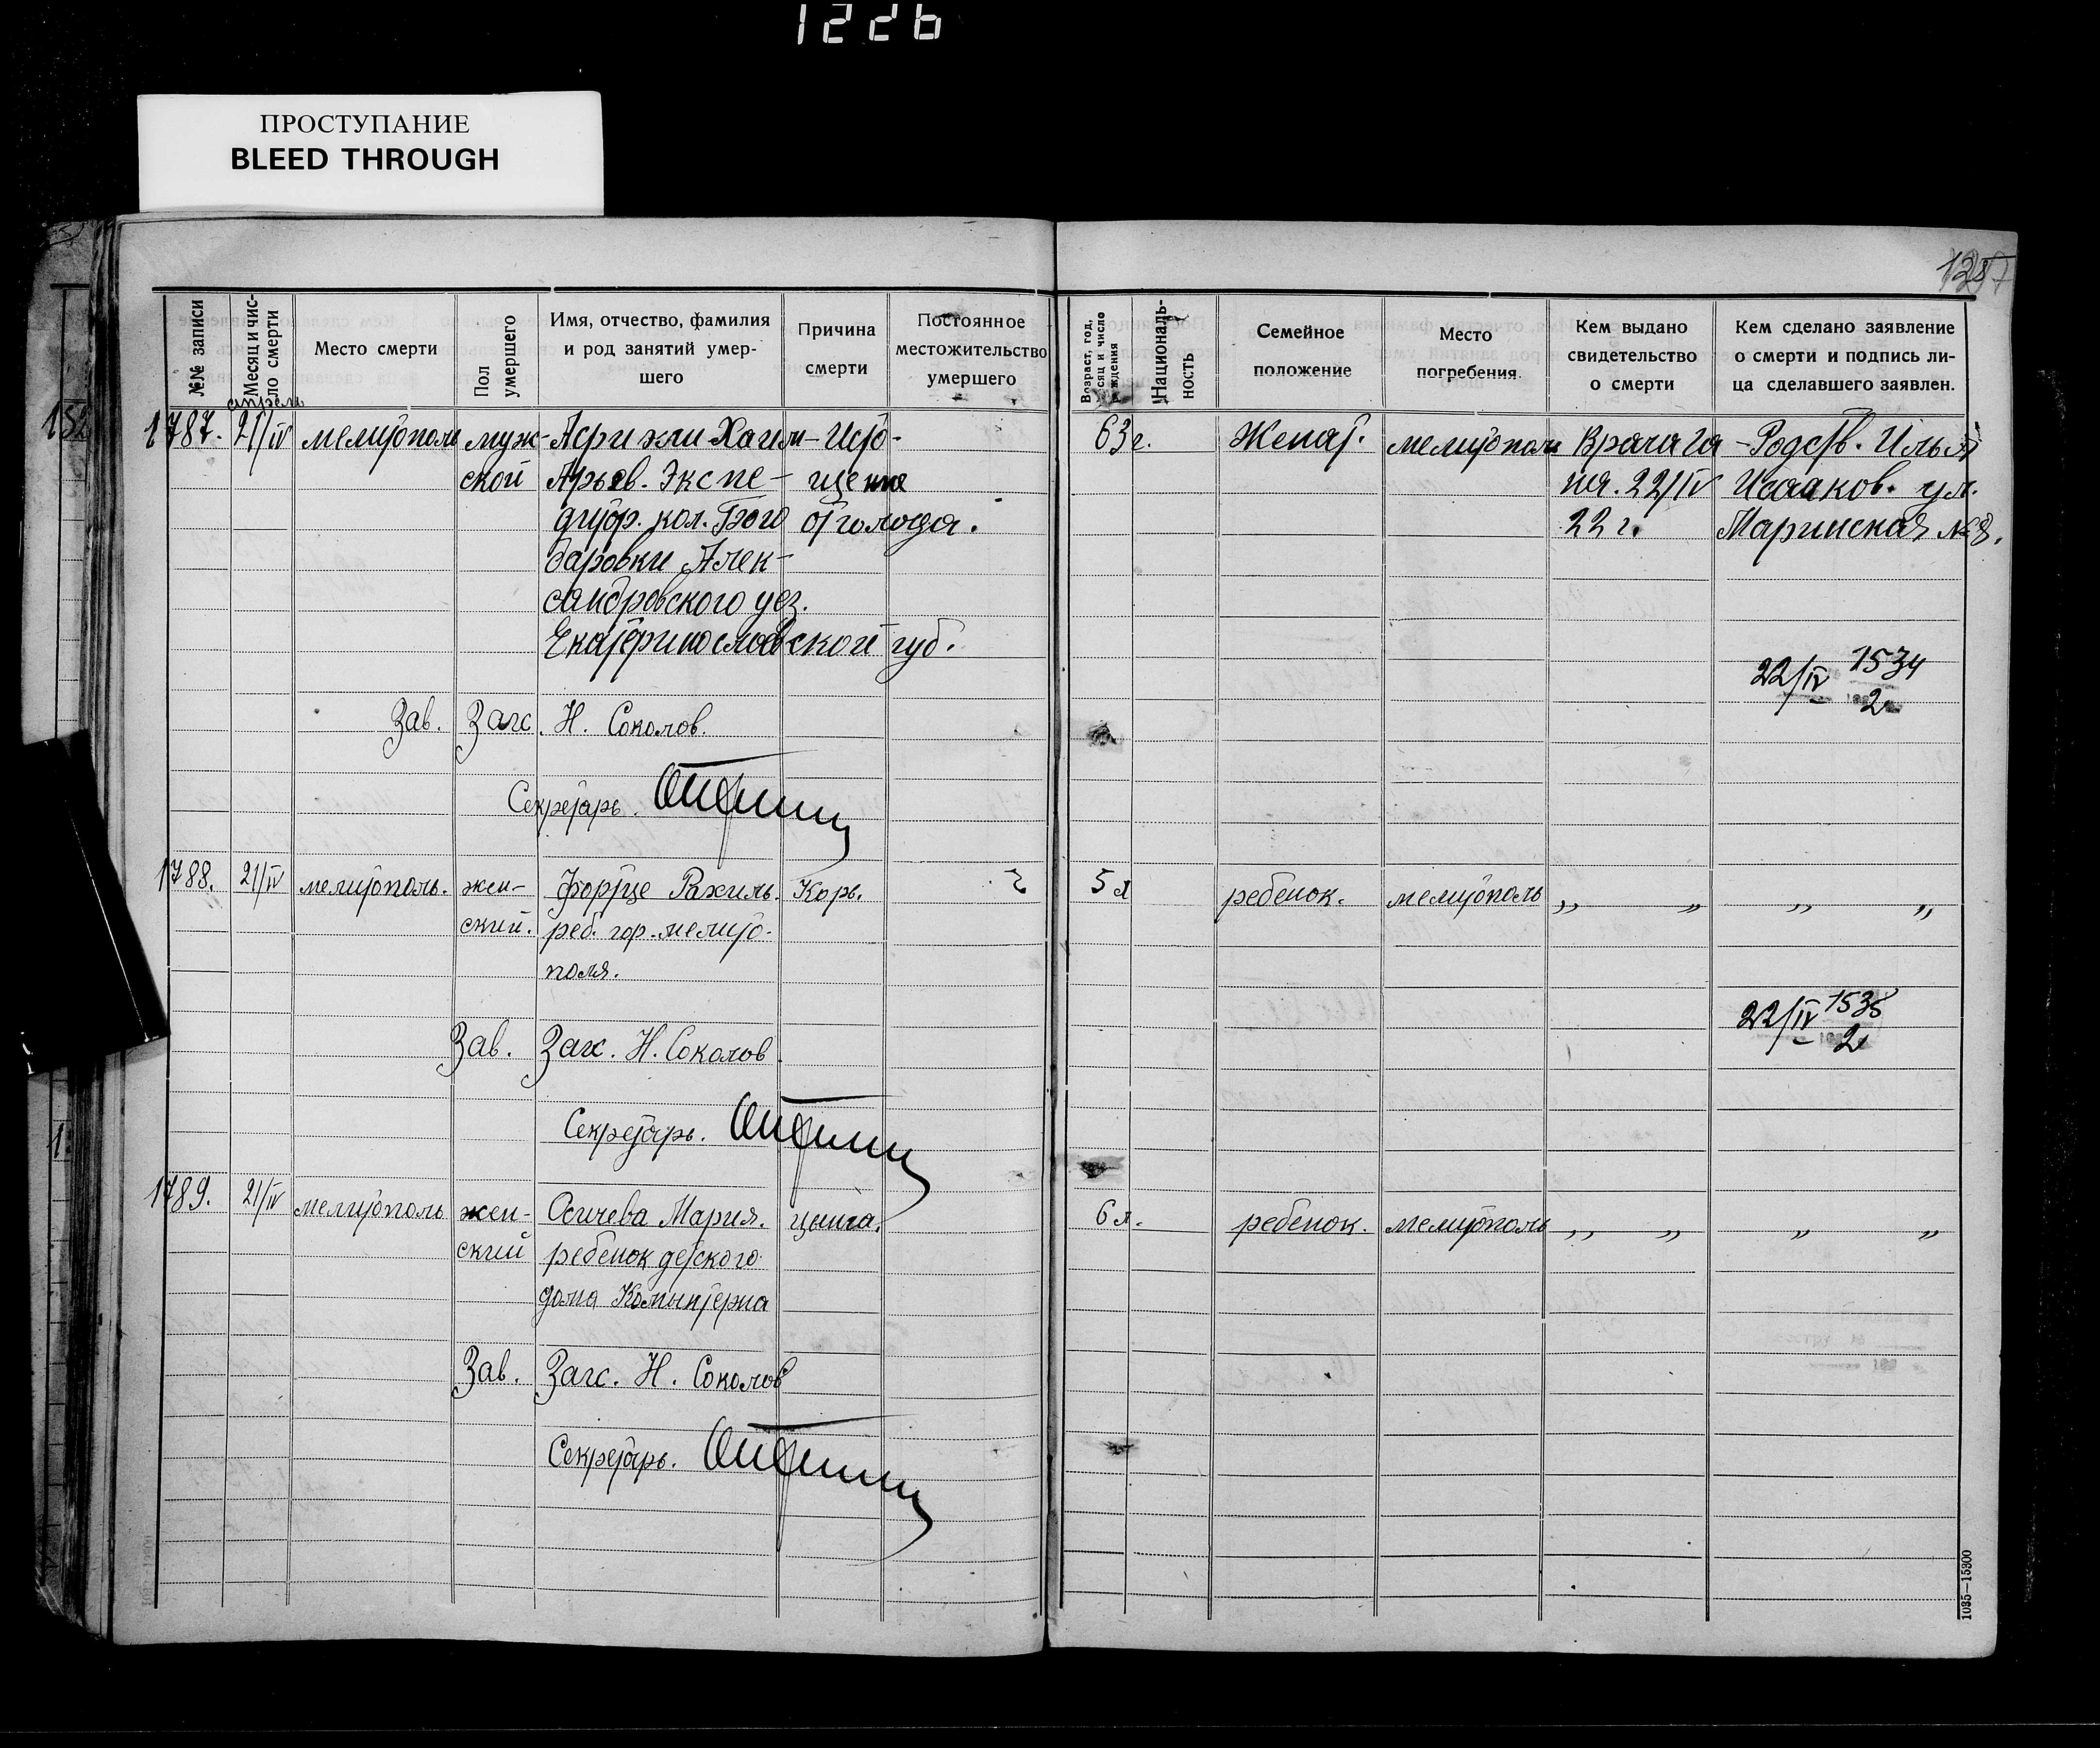 1226
ПРОСТУПАНИЕ
BLEED THROUGH
№№ записи
Месяц и чис-
ло смерти
Место смерти
Пол
умершего
Имя, отчество, фамилия
и род занятий умер-
шего
Причина
смерти
Постоянное
местожительство
умершего
Возраст, год,
сяц и число
ждения
Националь-
ность
Семейное
положение
Место
погребения.
Кем выдано
свидетельство
о смерти
Кем сделано заявление
о смерти и подпись ли-
ца сделавшего заявлен.
апрель
1787. 21/IV мелитополь муж- Хаим- Исто- 63 г. Женат. мелитополь Врача Га- Родств. Илья
ской Арьев. Экспе- щение 22/IV Исааков. ул.
дитор. кол. Бого от голода. 22 г. Маринская №8.
даровки Алек-
сандровского уез.
Екатеринославской губ.
22/IV 1534
2
Зав. Загс. Н. Соколов.
Секретарь.
1788. 21/IV мелитополь. жен- Рахиль. Корь. 5 л ребенок. мелитополь „ „ „ „
ский. реб. гор. мелито-
поля.
22/IV 1535
2
Зав. Загс. Н. Соколов
Секретарь.
1789. 21/IV мелитополь жен- Осичева Мария. цынга. 6 л. ребенок. мелитополь „ „ „ „
ский ребенок детского
дома Коминтерна
Зав. Загс. Н. Соколов
Секретарь.
1035—15300